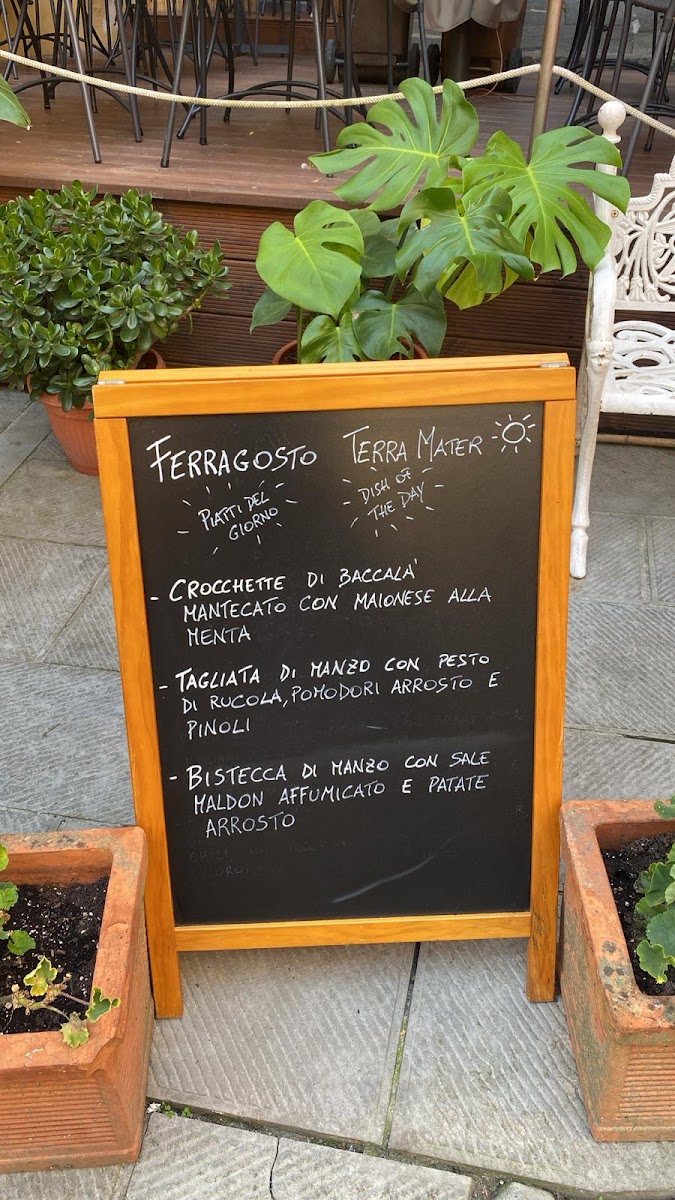 FERRAGOSTO TERRA MATER
PIATTI DEL
GIORNO
DISH OF
THE DAY
- CROCCHETTE DI BACCALA'
MANTECATO CON MAIONESE ALLA
MENTA
- TAGLIATA DI MANZO CON PESTO
DI RUCOLA, POMODORI ARROSTO E
PINOLI
- BISTECCA DI MANZO CON SALE
MALDON AFFUMICATO E PATATE
ARROSTO